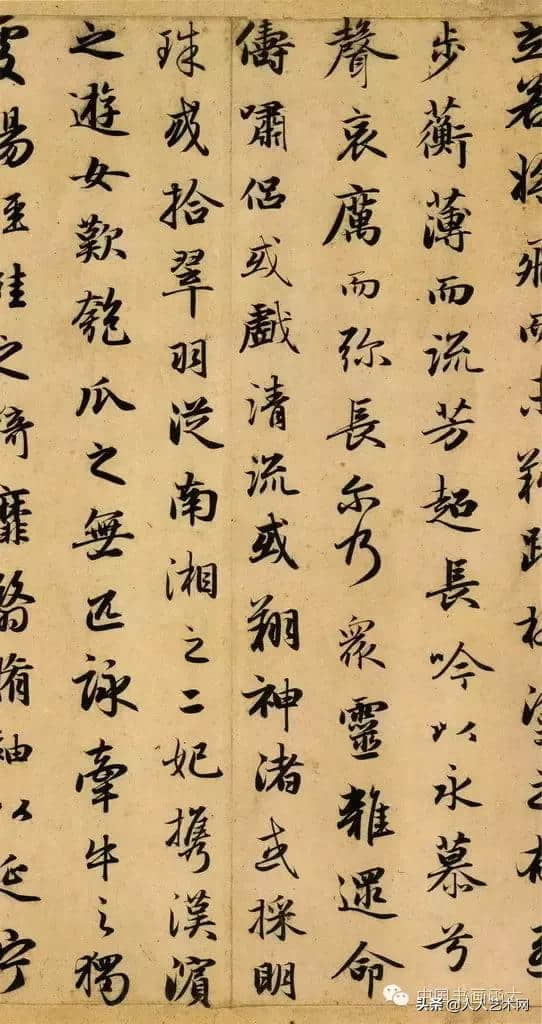 立若将飛而未翔踐椒塗之
步蘅薄而流芳超長吟以永慕兮
聲哀厲而弥長尔乃眾靈雜遝命
儔嘯侶或戲清流或翔神渚或採明
珠或拾翠羽從南湘之二妃攜漢濱
之遊女歎匏瓜之無匹詠牽牛之獨
處揚輕袿之綺靡翳脩袖以延佇
中国书画函大
头条 @人人艺术网